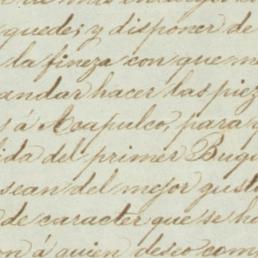 quede; y disponer de
la fineza con que m
andar hacer las piez
s á Acapulco, para q
ida del primer Buq
sean del mejor gust
de caracter que se ha
on á quien deseo com